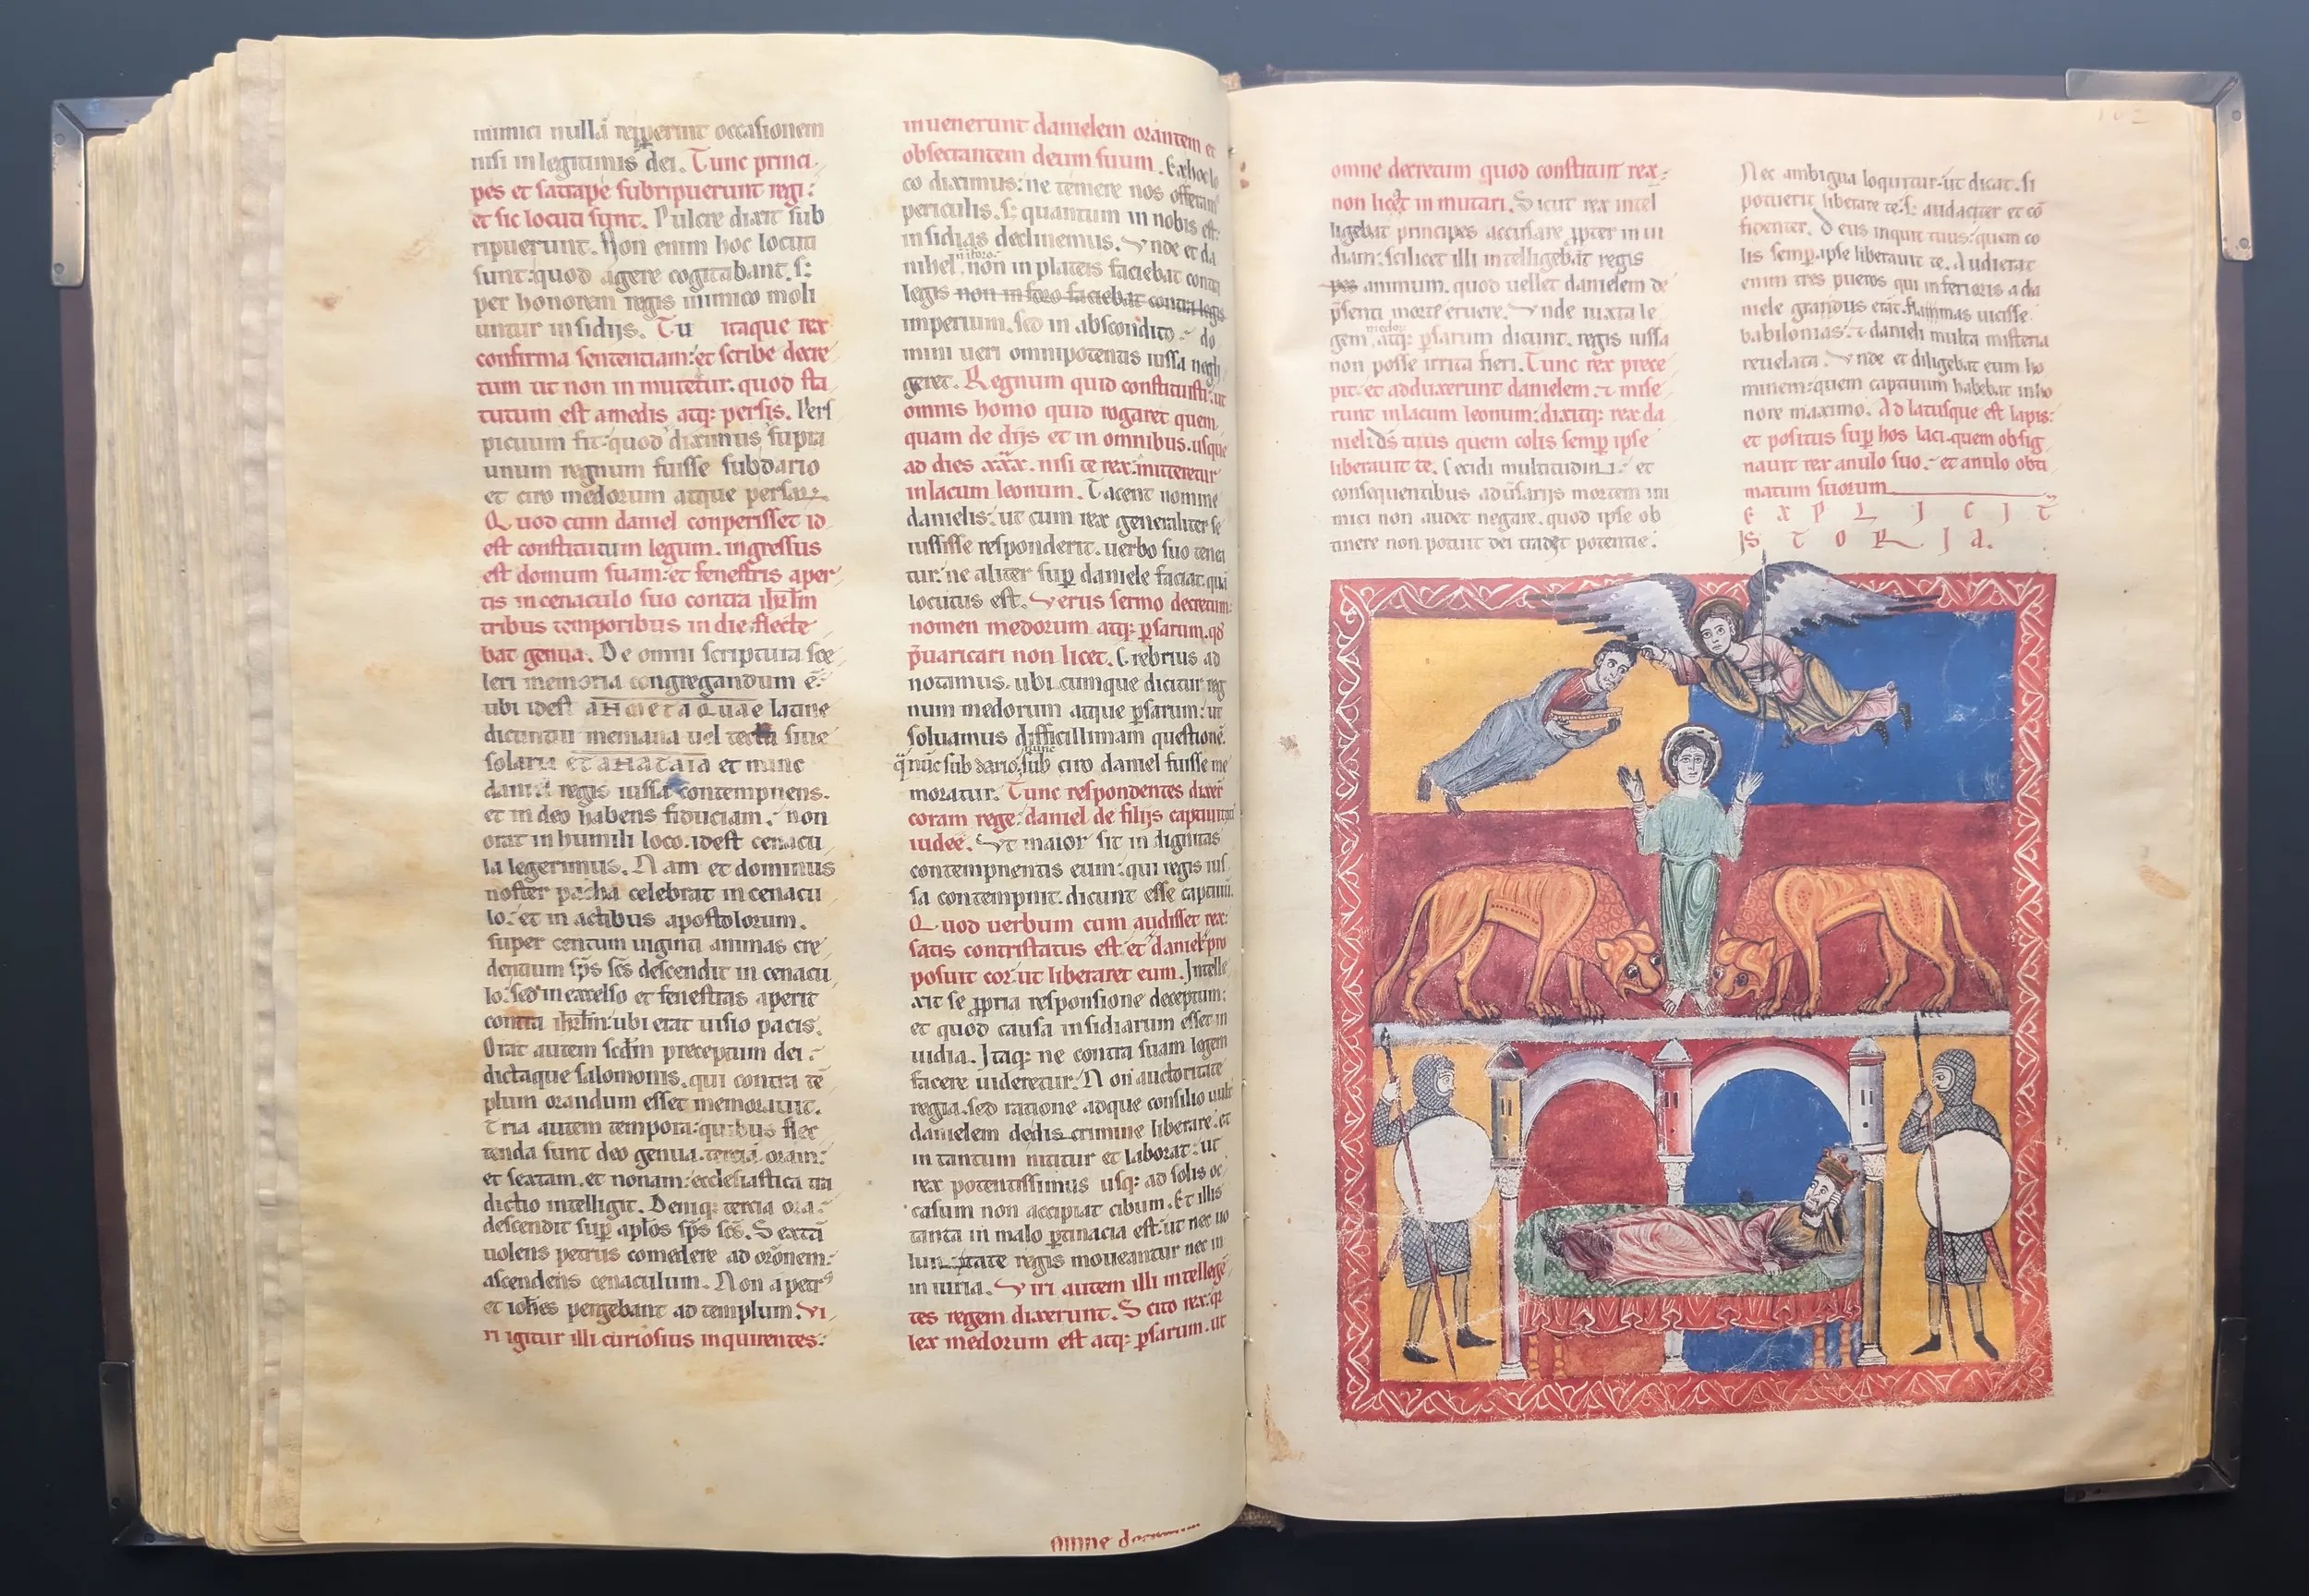 inimici nullā repperint occasionem
nisi in legitimis dei. Tunc princi
pes et satrape subripuerunt regi:
et sic locuti sunt. Pulcre dixit sub
ripuerunt. Non enim hoc locuti
sunt: quod agere cogitabant. s;
per honorem regis inimico moli
untur insidijs. Tu itaque rex
confirma sententiam: et scribe decre
tum ut non in mutetur. quod sta
tutum est a medis atq; persis. Pers
picuum fit: quod diximus supra
unum regnum fuisse sub dario
et ciro medorum atque persar
Quod cum daniel conperisset id
est constitutum legum. ingressus
est domum suam: et fenestris aper
tis in cenaculo suo contra ihrlm
tribus temporibus in die flecte
bat genua. De omni scriptura
memoria congregandum ē:
ubi idest latine
dicuntur meniana uel tecta siue
solaria et et nunc
daniel regis iussa contempnens.
et in deo habens fiduciam. non
orat in humili loco. idest cenacu
la legerimus. Nam et dominus
noster pascha celebrat in cenacu
lo: et in actibus apostolorum.
super centum uiginti animas cre
dentium sp̄s sc̄s descendit in cenacu
lo. sed in excelso et fenestras aperit
contra ihrlm: ubi erat uisio pacis.
Orat autem scdm preceptum dei.
dictaque salomonis. qui contra tē
plum orandum esset memorauit.
Tria autem tempora: quibus flec
tenda sunt deo genua. tercia oram:
et sextam. et nonam: ecclesiastica tra
dictio intelligit. Deniq; tercia ora.
descendit sup aplos sp̄s sc̄s. Sextā
uolens petrus comedere ad orōnem:
ascendens cenaculum. Nona petr⁹
et iohēs pergebant ad templum. Vi
ri igitur illi curiosius inquirentes:
inuenerunt danielem orantem et
obsecrantem deum suum. Ex hoc lo
co diximus: ne temere nos offeram
periculis. s; quantum in nobis est:
insidias declinemus. Vnde et da
nihel, non in plateis faciebat contra
legis non in foro faciebat contra legis
imperium. sed in abscondito: do
mini ueri omnipotentis iussa negli
geret. Regnum quid constituisti: ut
omnis homo quid rogaret quem
quam de dijs et in omnibus. usque
ad dies xxx. nisi te rex: mitteretur
in lacum leonum. Tacent nomine
danielis: ut cum rex generaliter se
iussisse responderit. uerbo suo tenea
tur: ne aliter sup daniele faciat. quā
locutus est. Verus sermo decretum:
nomen medorum atq; p̄sarum. qd
p̄uaricari non licet. Crebrius ad
notamus. ubi cumque dicitur reg
num medorum atque p̄sarum: ut
soluamus difficillimam questionē.
nūc sub dario, sub ciro daniel fuisse me
moratur. Tunc respondentes dixer
coram rege: daniel de filijs captiuitati
iudee. Vt maior sit in dignitas
contempnentis eum: qui regis ius
sa contempnit. dicunt esse captiuū.
Quod uerbum cum audisset rex:
satis contristatus est: et daniel pro
posuit cor: ut liberaret eum. Intelle
xit se ppria responsione deceptum:
et quod causa insidiarum esset in
uidia. Itaq; ne contra suam legem
facere uideretur: Non auctoritate
regia. sed ratione adque consilio uult
danielem de discrimine liberare: et
in tantum nititur et laborat: ut
rex potentissimus usq; ad solis oc
casum non accipiat cibum. Et illis
tanta in malo ptinacia est: ut nec uo
luntate regis moueantur nec in
iuria. Viri autem illi intellege
tes regem dixerunt. Scito rex: qr
lex medorum est atq; p̄sarum. ut
omne decretum
omne decretum quod constituit rex:
non licet in mutari. Sicut rex intel
ligebat principes accusare ppter in ui
diam: scilicet illi intelligebāt regis
animum. quod uellet danielem de
p̄senti morte eruere. Vnde iuxta le
gem medor atq; p̄sarum dicunt. regis iussa
non posse irrita fieri. Tunc rex prece
pit: et adduxerunt danielem. et mise
runt in lacum leonum: dixitq; rex da
nieli. ds̄ tuus quem colis semp ipse
liberauit te. Cecidi multitudini: et
consequentibus adūsarijs mortem ini
mici non audet negare. quod ipse ob
tinere non potuit dei tradet potentie:
Nec ambigua loquitur. ut dicat. si
potuerit liberare te. s; audacter et cō
fidenter. Deus inquit tuus: quem co
lis semp. ipse liberauit te. Audierat
enim tres pueros qui inferioris a da
niele gradus erāt. flammas uicisse
babilonias: et danieli multa misteria
reuelata. Vnde et diligebat eum ho
minem: quem captiuum habebat in ho
nore maximo. Ad latusque est lapis:
et positus sup hos laci. quem obsig
nauit rex anulo suo: et anulo obti
matum suorum
E X P L I C I T
IS T O R I A.